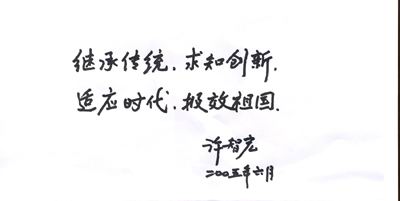 继承传统，求知创新，
适应时代，报效祖国。
许智宏
二00五年六月